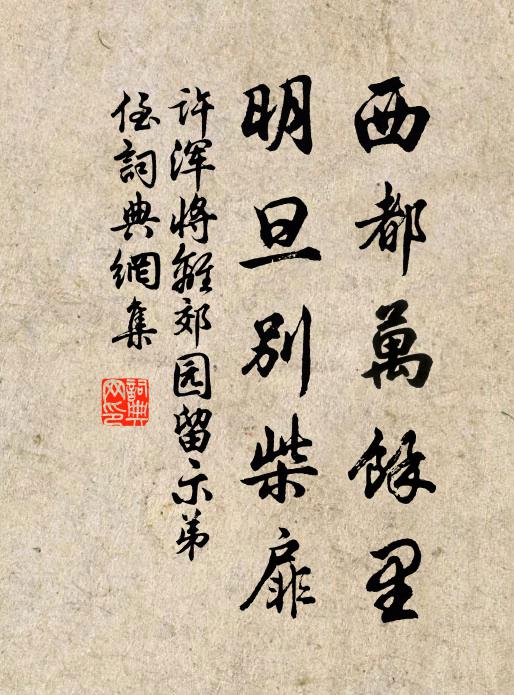 西都萬餘里
明旦別柴扉
许浑将離郊园留示弟
侄詞典網集
詞典网印